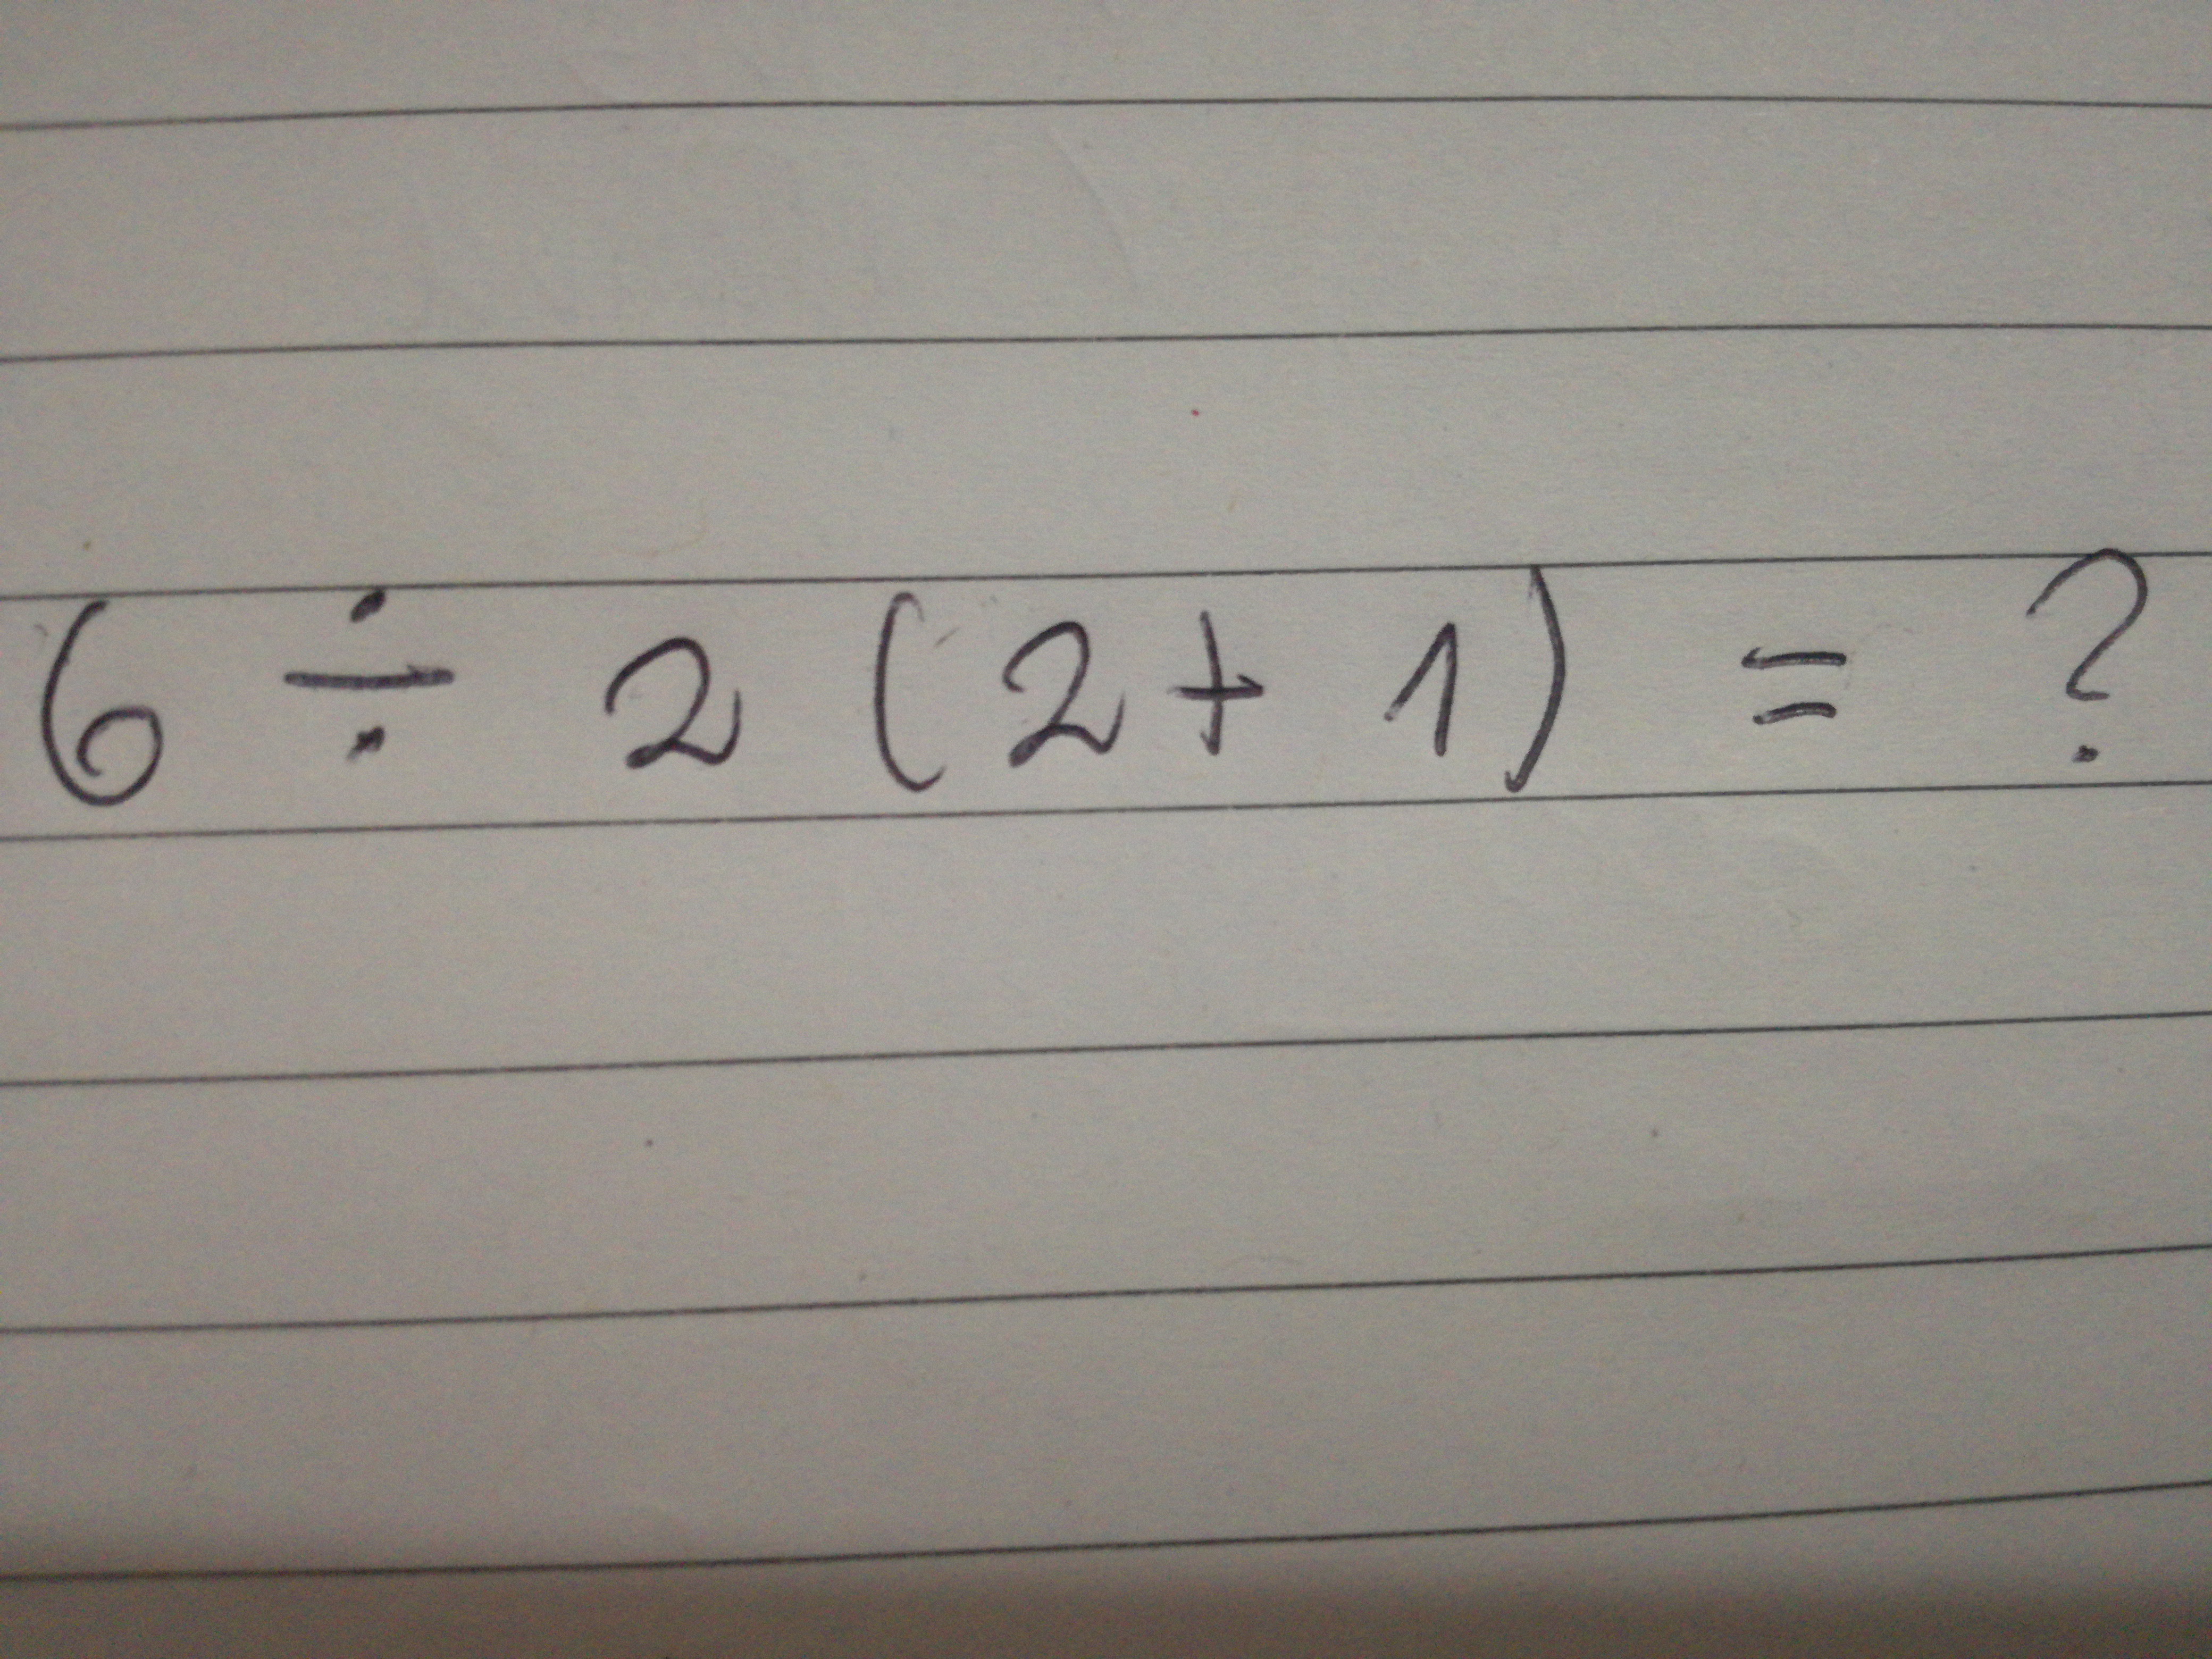 6 ÷ 2 (2 + 1) = ?